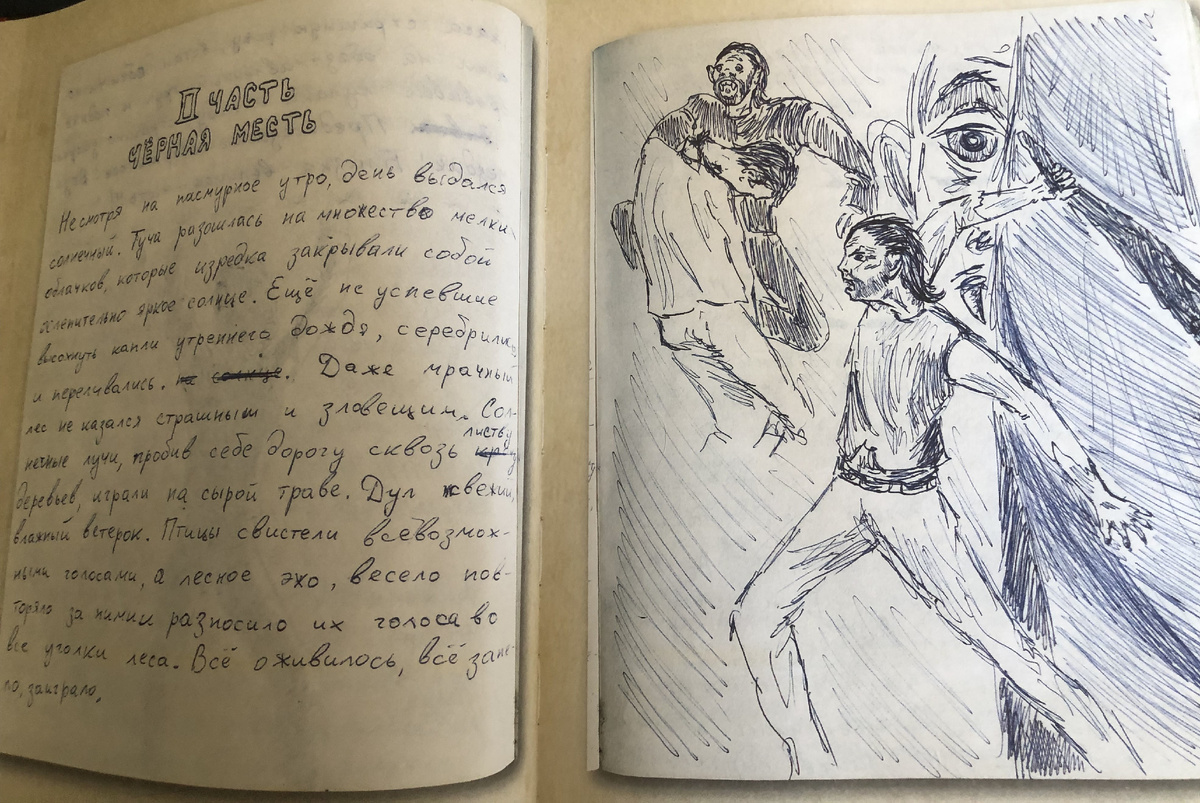 II ЧАСТЬ
ЧЁРНАЯ МЕСТЬ
Несмотря на пасмурное утро, день выдался
солнечный. Туча разошлась на множество мелки
облачков, которые изредка закрывали собой
ослепительно яркое солнце. Ещё не успевшие
высохнуть капли утреннего дождя, серебрились
и переливались. на солнце. Даже мрачный
лес не казался страшным и зловещим. Сол-
листву
нечные лучи, пробив себе дорогу сквозь
деревьев, играли на сырой траве. Дул свежий,
влажный ветерок. Птицы свистели всевозмож-
ными голосами, а лесное эхо, весело пов-
торяло за ними разносило их голоса во
все уголки леса. Всё оживилось, всё запе-
ло, заиграло,